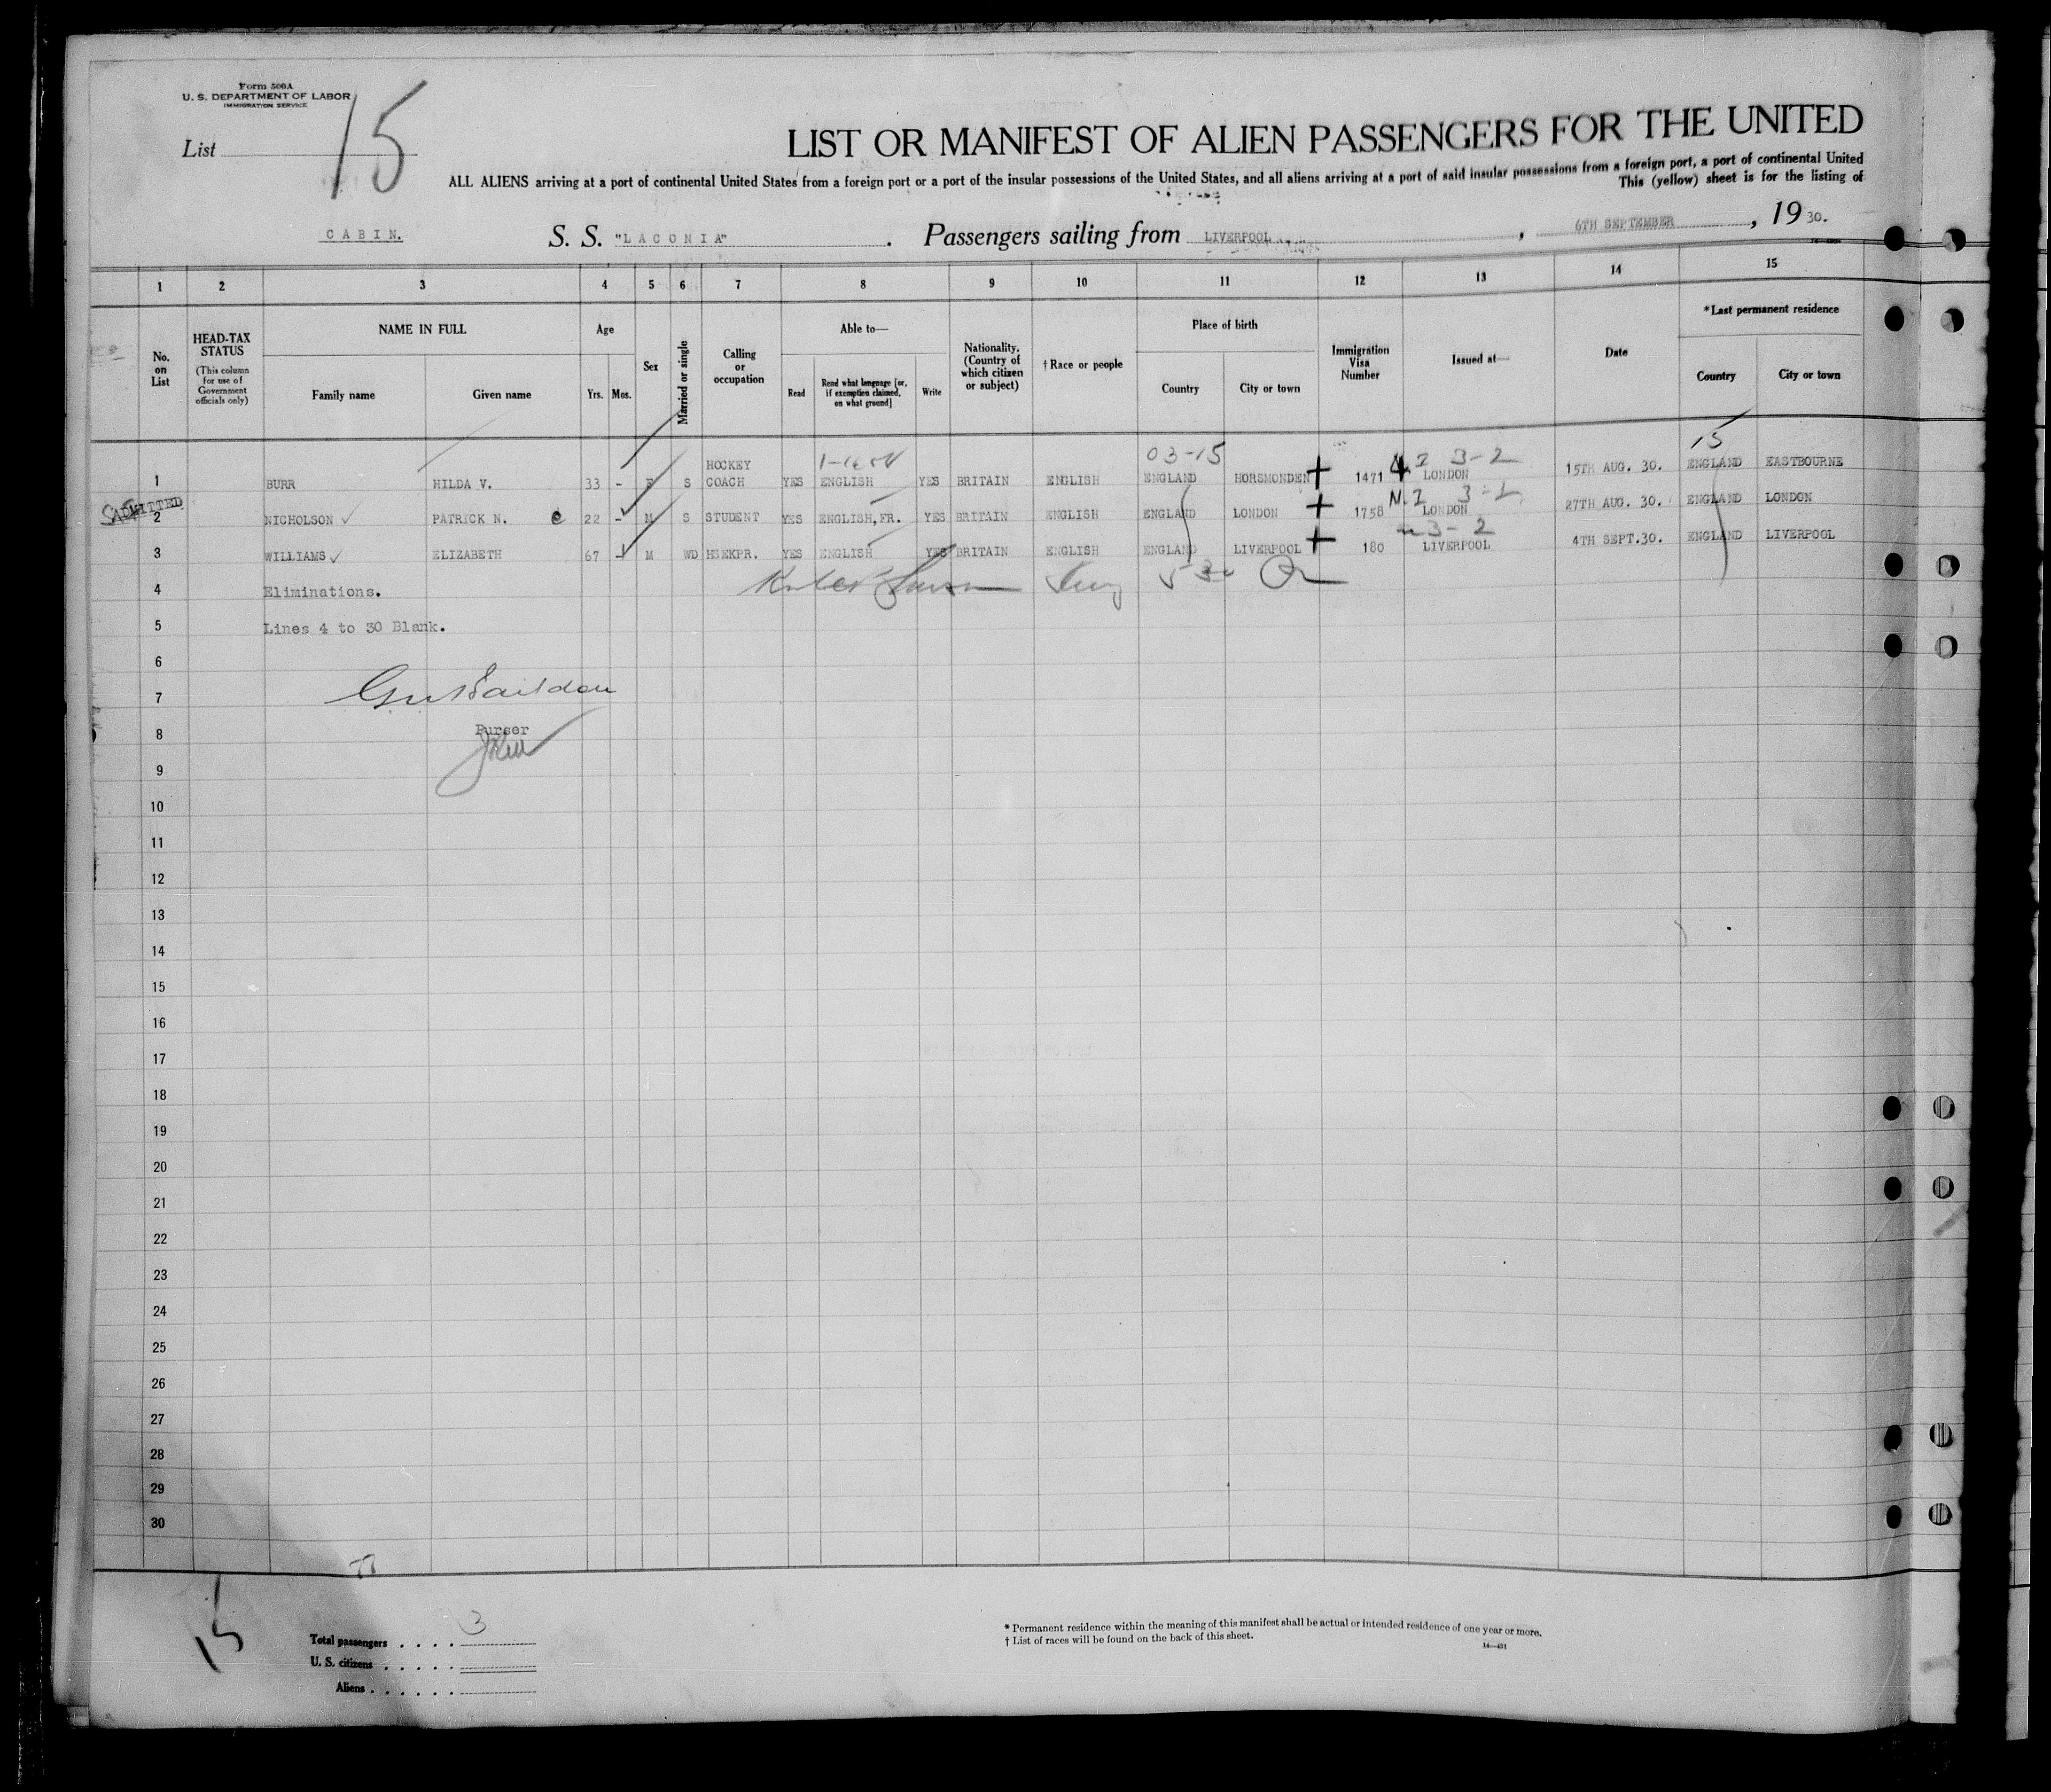 Form 500A
U. S. DEPARTMENT OF LABOR
IMMIGRATION SERVICE
List 15
LIST OR MANIFEST OF ALIEN PASSENGERS FOR THE UNITED
ALL ALIENS arriving at a port of continental United States from a foreign port or a port of the insular possessions of the United States, and all aliens arriving at a port of said insular possessions from a foreign port, a port of continental United
This (yellow) sheet is for the listing of
CABIN. S. S. "LACONIA" . Passengers sailing from LIVERPOOL , 6TH SEPTEMBER , 19 30.
1 2 3 4 5 6 7 8 9 10 11 12 13 14 15
No. on List
HEAD-TAX STATUS (This column for use of Government officials only)
NAME IN FULL
Family name Given name
Age
Yrs. Mos.
Sex
Married or single
Calling or occupation
Able to—
Read Read what language [or, if exemption claimed, on what ground] Write
Nationality. (Country of which citizen or subject)
† Race or people
Place of birth
Country City or town
Immigration Visa Number
Issued at—
Date
*Last permanent residence
Country City or town
03-15 3-2 15
1 BURR HILDA V. 33 - F S HOCKEY COACH YES ENGLISH YES BRITAIN ENGLISH ENGLAND HORSMONDEN 1471 LONDON 15TH AUG. 30. ENGLAND EASTBOURNE
ADMITTED
2 NICHOLSON PATRICK N. c 22 - M S STUDENT YES ENGLISH, FR. YES BRITAIN ENGLISH ENGLAND LONDON 1758 LONDON 27TH AUG. 30. ENGLAND LONDON
3-2
3 WILLIAMS ELIZABETH 67 - M WD HSEKPR. YES ENGLISH YES BRITAIN ENGLISH ENGLAND LIVERPOOL 180 LIVERPOOL 4TH SEPT.30. ENGLAND LIVERPOOL
4 Eliminations.
5 Lines 4 to 30 Blank.
6
7
8 Purser
9
10
11
12
13
14
15
16
17
18
19
20
21
22
23
24
25
26
27
28
29
30
15
Total passengers . . . . 3
U. S. citizens . . . . .
Aliens . . . . . .
* Permanent residence within the meaning of this manifest shall be actual or intended residence of one year or more.
† List of races will be found on the back of this sheet.